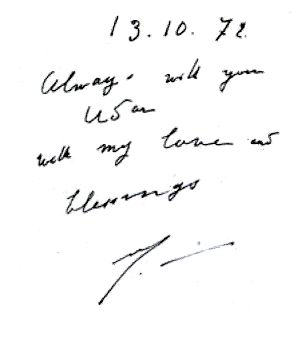 13.10.72
Always with you
with my love and
blessings